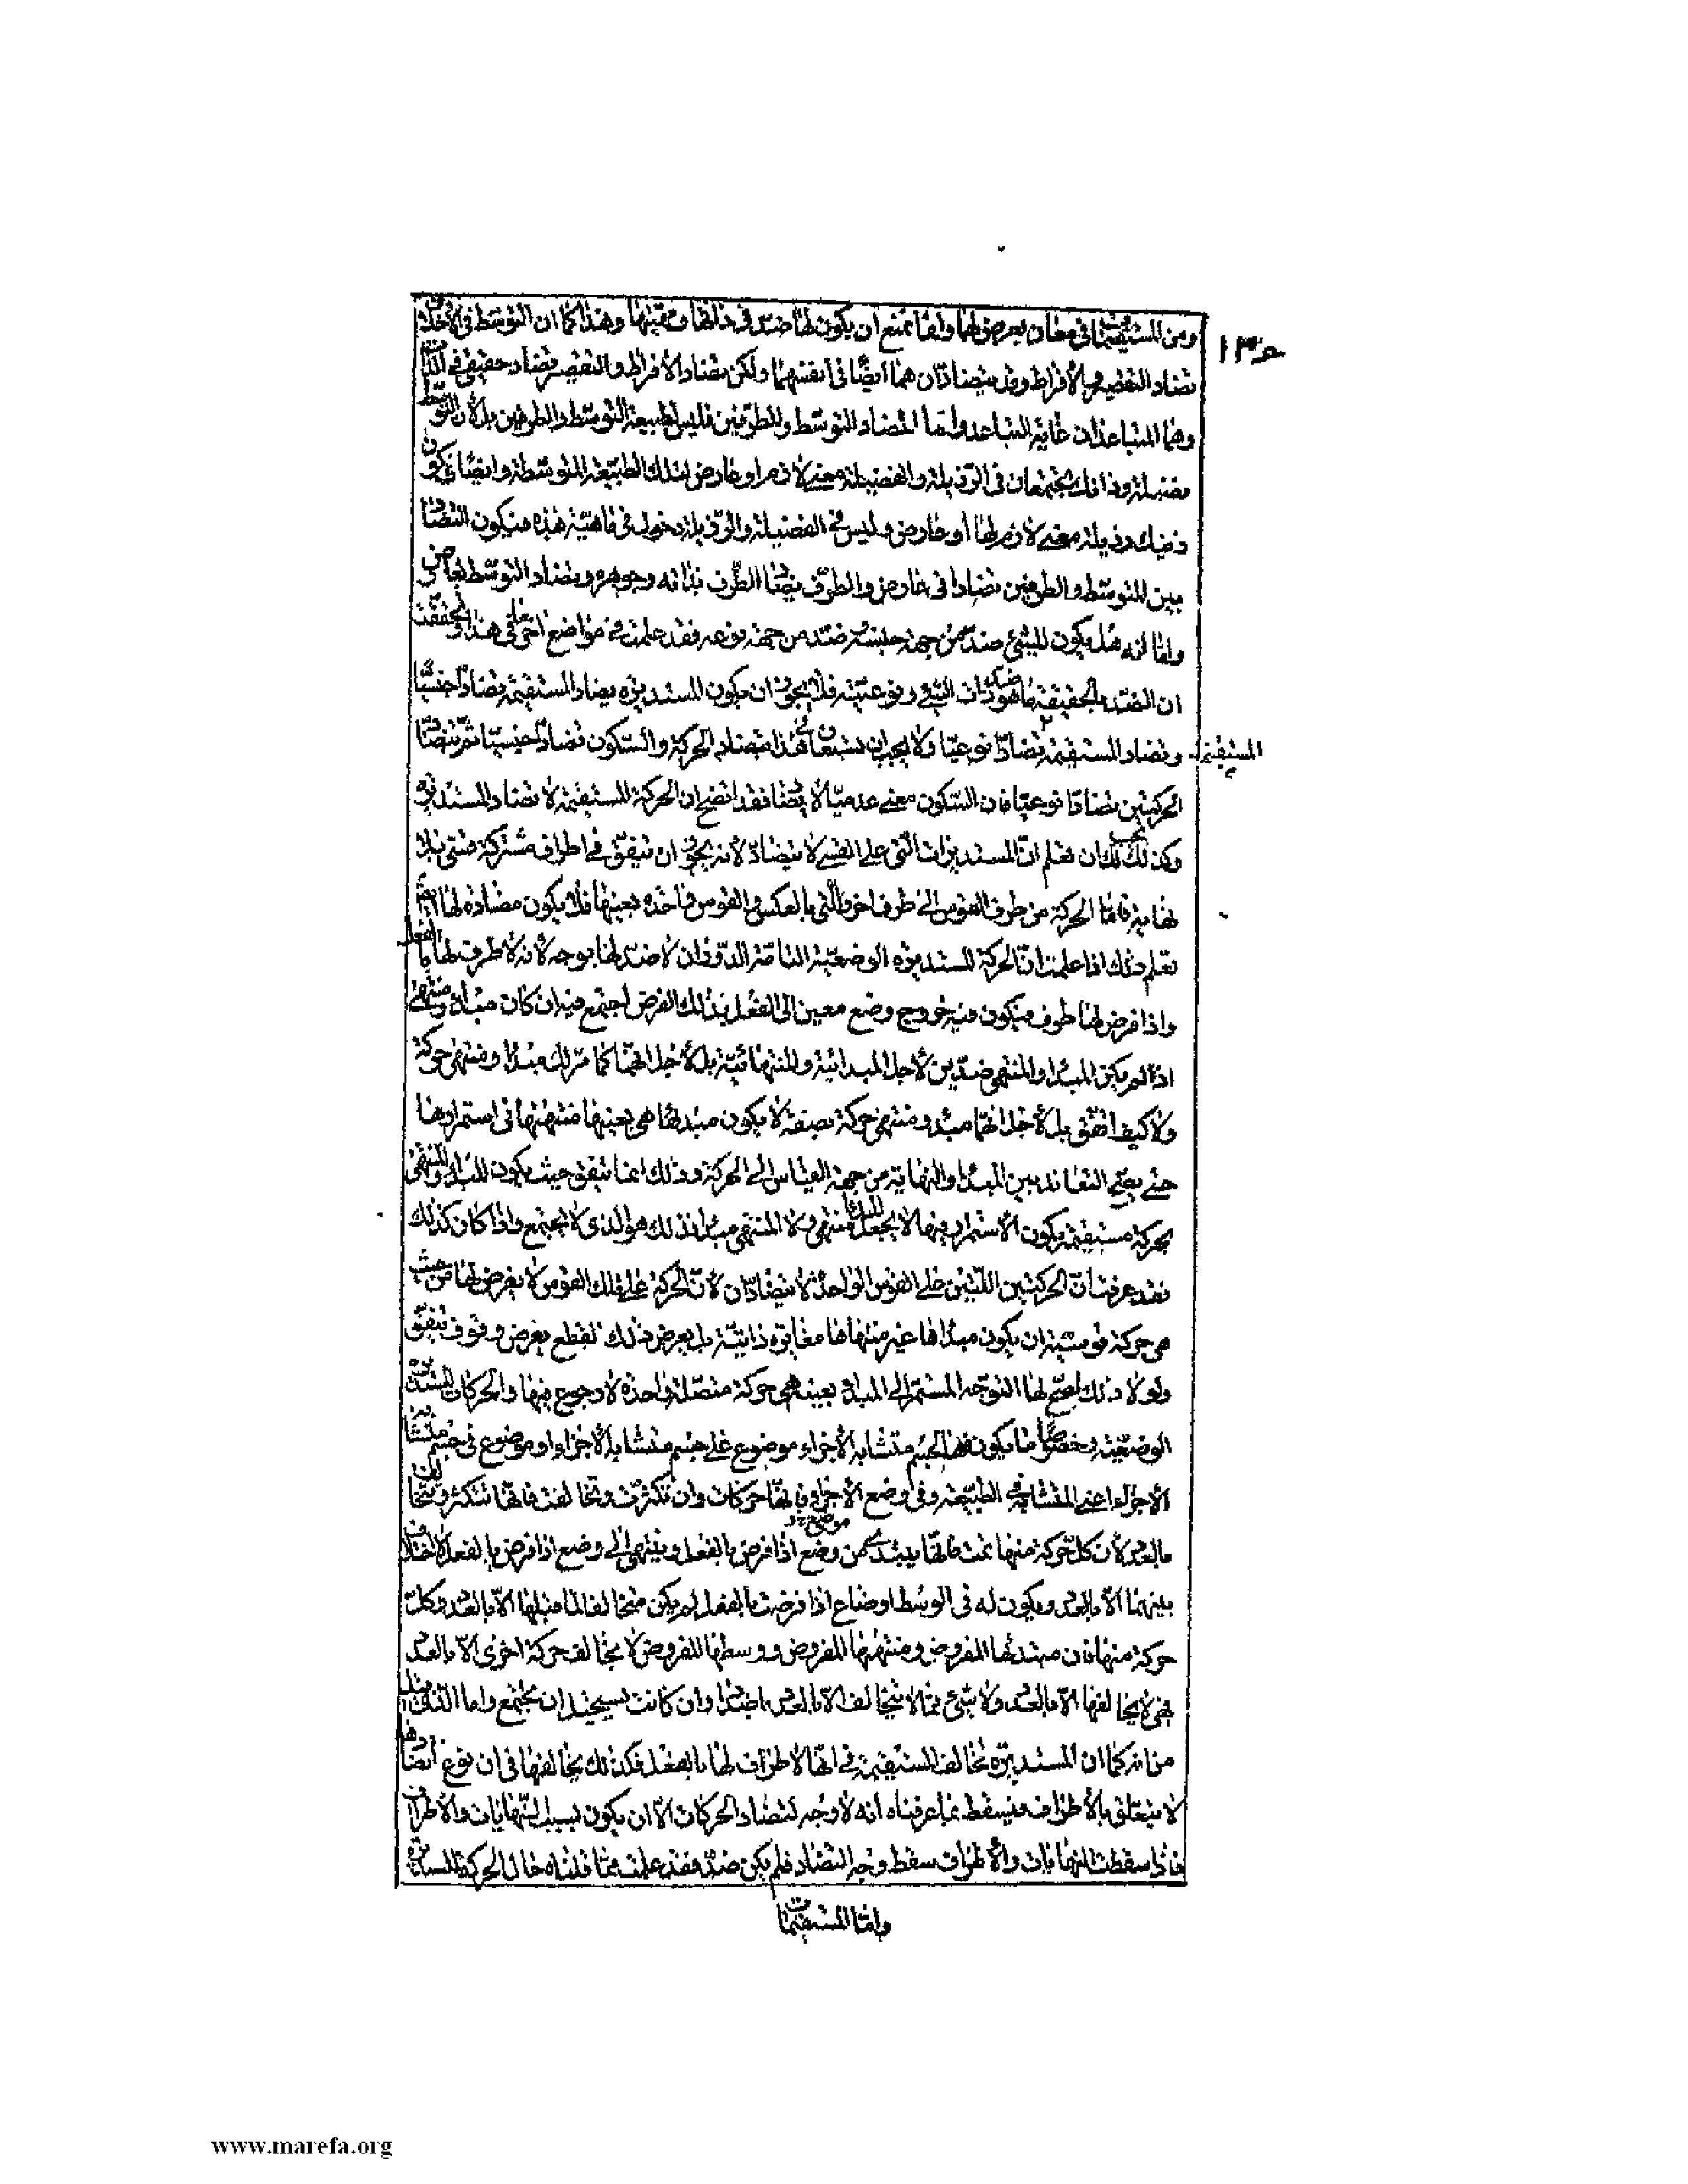 ومن المستقيمات فى معان يعرض لها واما تمنع ان يكون لها ضد فى ذاتها وهذا كما ان التوسط فى الأخلاق
تضاد التقصير والأفراط وقد يتضادان هما ايضا فى انفسهما ولكن تضاد الأفراط والتقصير تضاد حقيقى فى
وهما المتباعدان غاية التباعد واما تضاد التوسط والطرفين فليس لطبيعة التوسط والطرفين بل لأن التوسط
فضيلة وذانك يجتمعان فى الرذيلة والفضيلة معنى لازم او عارض لتلك الطبيعة المتوسطة وايضا فكون
ذينك رذيلة معنى لازم لها او عارض وليس فى الفضيلة والرذيلة دخول فى ماهية هذه فيكون التضاد
بين المتوسط والطرفين تضادا فى عارض والطرف يضاد الطرف بذاته وجوهره وتضاد التوسط بعارض
واما انه هل يكون للشئ ضد من جهة جنسه وضد من جهة نوعه فقد علمت فى مواضع اخرى
ان الضد بالحقيقة ما هو ضد ذات الشئ ونوعيته فلا يجوز ان يكون المستديرة يضاد المستقيمة تضادا جنسيا
وتضاد المستقيمة المستقيمة تضادا نوعيا ولا يجب ان يستعان فى هذا بتضاد الحركة والسكون تضادا جنسيا ثم تضاد
الحركتين تضادا نوعيا فان السكون معنى عدمى لا يضاد فقد اتضح ان الحركة المستقيمة لا تضاد المستديرة
وكذلك يجب لك ان تعلم ان المستديرات التى على القسى لا يتضاد لأنه يجوز ان تتفق فى اطراف مشتركة قسى بلا
نهاية فاما الحركة من طرف القوس الى طرف اخر والتى بالعكس والقوس واحدة بعينها فلا يكون مضادة لها
تعلم ذلك اذا علمت ان الحركة المستديرة الوضعية التامة الدوران لا ضد لها بوجه لأنه لا طرف لها بالفعل
واذا فرض لها طرف فيكون فيه خروج وضع معين الى الفعل بذلك الفرض اجتمع فيه ان كان مبدأ ومنتهى
اذ لم يكن المبدأ والمنتهى ضدين لأجل المبدائية والمنتهائية بل لأجل انهما كما مر لك مبدأ ومنتهى حركة
ولا كيف اتفق بل لأجل انهما مبدأ ومنتهى حركة بصفة لا يكون مبدئها هى بعينها منتهيتها فى استمرارها
حتى يصح التعاند بين المبدأ والنهاية من جهة القياس الى الحركة وذلك انما يتفق حيث يكون المبدأ والمنتهى
لحركة مستقيمة يكون الأستمرار فيها لا يجعل المبدأ منتهى ولا المنتهى مبدأ فذلك هو الذى لا يجتمع واذا كان كذلك
فقد عرفت ان الحركتين اللتين على القوس الواحدة لا يتضادان لأن الحركة على تلك القوس لا يعرض لها من حيث
هى حركة قوسية ان يكون مبدأها غير منتهاها مغايرة ذاتية بل يعرض ذلك لقطع يعرض ووقوف يتفق
ولو لا ذلك لصح لها التوجه المستمر الى المبدأ بعينه هى حركة متصلة واحدة لا رجوع فيها والحركات المستديرة
الوضعية وخصوصا ما يكون فيها الجسم متشابه الأجزاء موضوع على جسم متشابه الأجزاء او موضوع فى جسم متشابه
الأجزاء اعنى المتشابه فى الطبيعة وفى وضع الأجزاء فانها حركات وان تكثرت وتخالفت فانها تتكثر وتتخالف
بالعدد لأن كل حركة منها تمت فانها يبتدئ من وضع اذا فرض بالفعل وينتهى الى وضع موضع اذا فرض بالفعل لا خلاف
بينهما الا بالعدد ويكون له فى الوسط اوضاع اذا فرضت بالفعل لم يكن متخالفا لما قبلها الا بالعدد وكل
حركة منها فان مبتدئها المفروض ومنتهيها المفروض ووسطها المفروض لا يخالف حركة اخرى الا بالعدد
فهى لا يخالفها الا بالعدد ولا شئ مما لا يتخالف الا بالعدد باضداد وان كانت يستحيل ان يجتمع واما الذى
من انه كما ان المستديرة تخالف المستقيمة فى انها لا طراف لها بالفعل فكذلك يخالفها فى ان نوع تضادها
لا يتعلق بالأطراف فيسقط بما عرفناه انه لا وجه لتضاد الحركات الا ان يكون بسبب النهايات والأطراف
فاذا سقطت النهايات والأطراف سقط وجه التضاد فلم يكن ضد فقد علمت مما قلناه حال الحركة المستديرة
واما المستقيمات
www.marefa.org